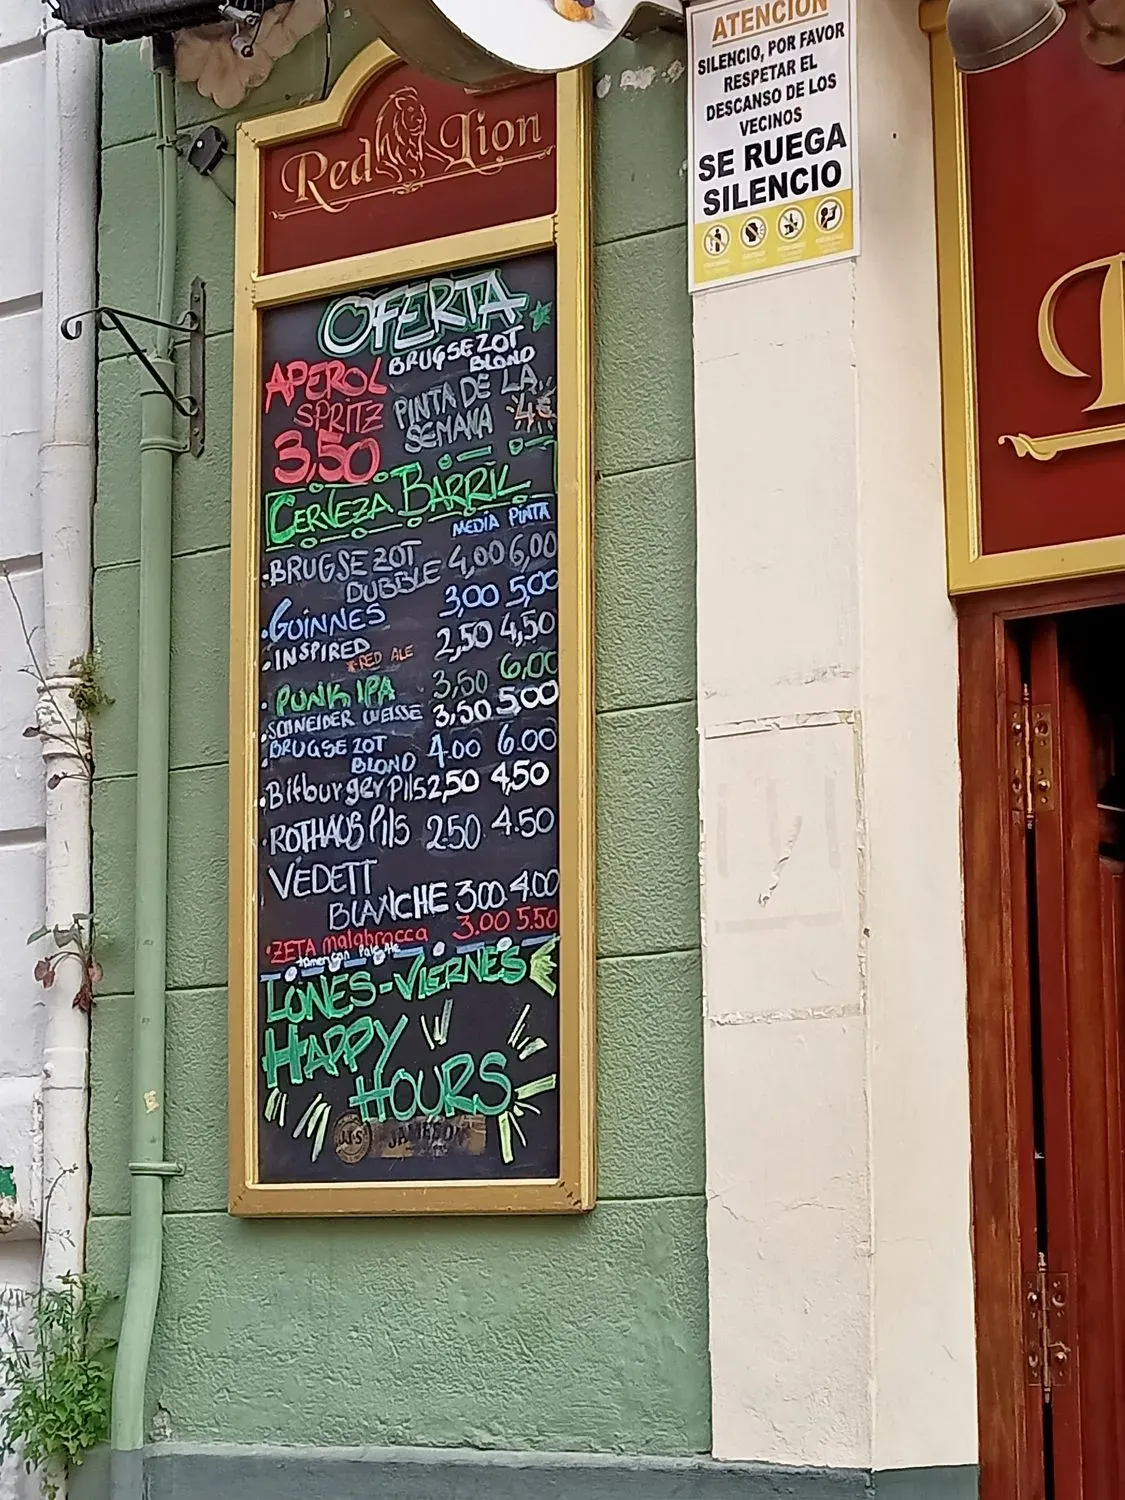 Red Lion
OFERTA
APEROL
SPRITZ
3.50
BRUGSE ZOT
BLOND
PINTA DE LA
SEMANA 4€
CERVEZA BARRIL
MEDIA PINTA
·BRUGSE ZOT
DUBBLE 4,00 6,00
·GUINNES 3,00 5,00
·INSPIRED 2,50 4,50
RED ALE
·PUNK IPA 3,50 6,00
·SCHNEIDER WEISSE 3,50 5,00
·BRUGSE ZOT 4.00 6.00
BLOND
·Bitburger Pils 2,50 4,50
·ROTHAUS PilS 2.50 4.50
VEDETT
BLANCHE 3.00 4.00
·ZETA malabracca 3.00 5.50
American Pale Ale
LUNES-VIERNES
HAPPY
HOURS
JJ&S JAMESON
ATENCIÓN
SILENCIO, POR FAVOR
RESPETAR EL
DESCANSO DE LOS
VECINOS
SE RUEGA
SILENCIO